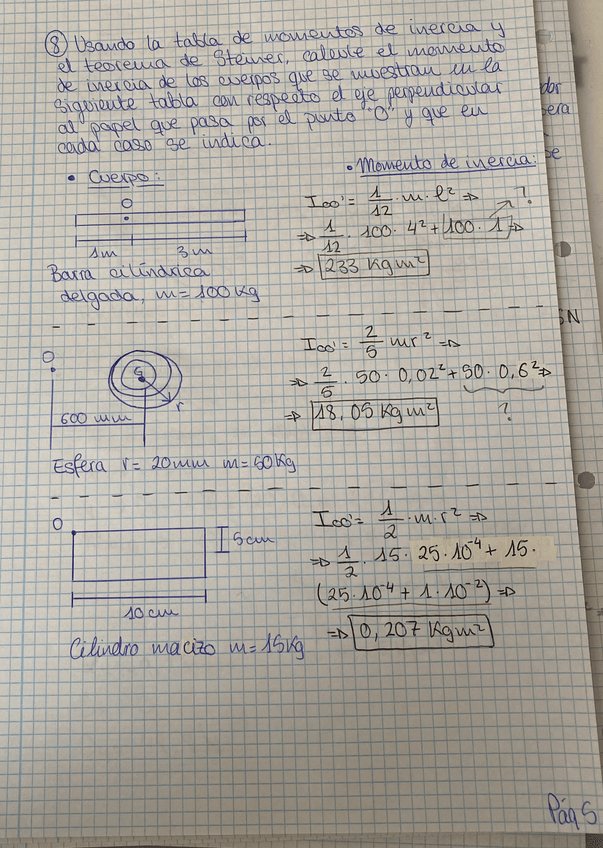 ⑧ Usando la tabla de momentos de inercia y
el teorema de Steiner, calcule el momento
de inercia de los cuerpos que se muestran en la
siguiente tabla con respecto el eje perpendicular
al papel que pasa por el punto "O" y que en
cada caso se indica.
• Cuerpo:
• Momento de inercia:
O
1m 3m
Barra cilíndrica
delgada, m = 100 kg
Ioo' = 1/12 · m · l² ⇒ ?
⇒ 1/12 · 100 · 4² + 100 · 1 ⇒
⇒ 233 Kgm²
O
G
r
600 mm
Esfera r = 20mm m = 50Kg
Ioo' = 2/5 mr² ⇒
⇒ 2/5 · 50 · 0,02² + 50 · 0,6² ⇒
⇒ 18,05 Kgm²
?
O
5cm
10 cm
Cilindro macizo m = 15Kg
Ioo' = 1/2 · m · r² ⇒
⇒ 1/2 · 15 · 25·10⁻⁴ + 15 ·
(25·10⁻⁴ + 1·10⁻²) ⇒
⇒ 0,207 Kgm²
Pág 5